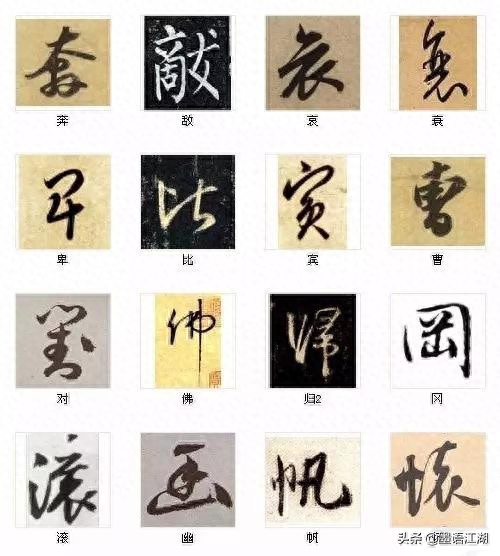 奔 敌 哀 衰
卑 比 宾 曹
对 佛 归2 冈
滚 幽 帆
头条 @墨语江湖